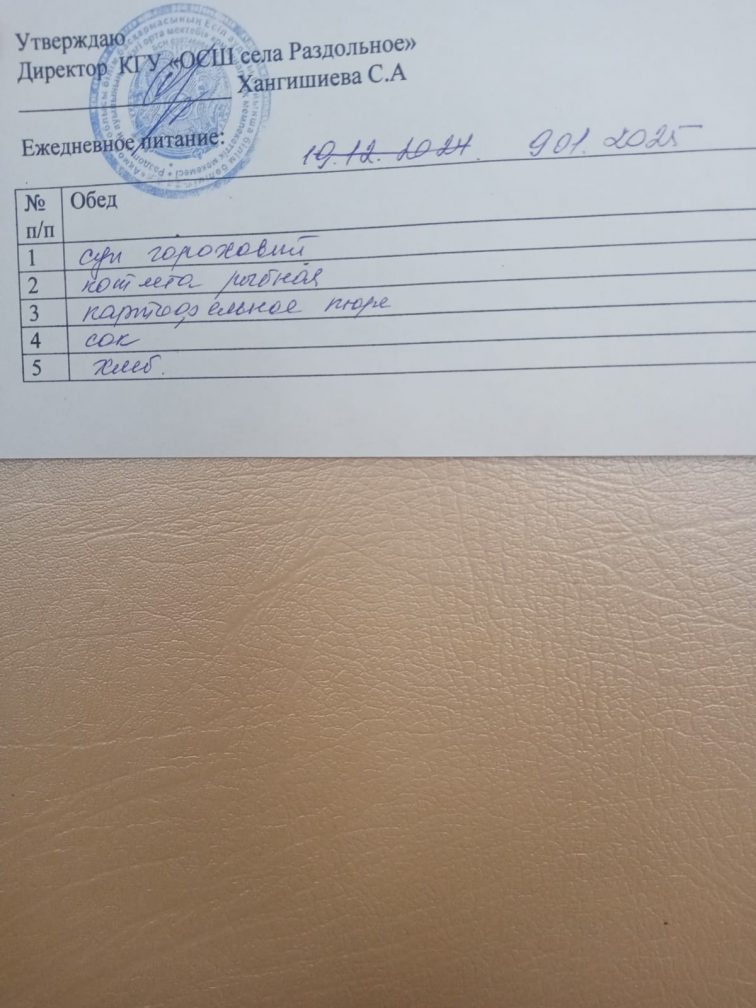 Утверждаю
Директор КГУ «ОСШ села Раздольное»
Хангишиева С.А
Ежедневное питание: 19.12.2024. 901.2025
№ п/п Обед
1 суп гороховий
2 котлета рыбная
3 картофельное пюре
4 сок
5 хлеб.